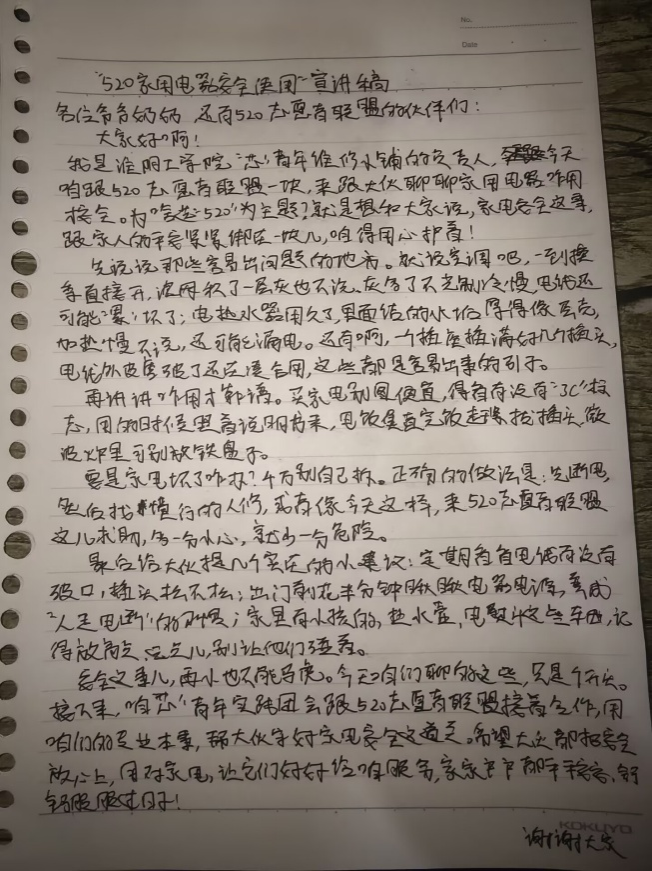 No.
Date
"520家用电器安全使用"宣讲稿
各位爷爷奶奶 还有520志愿者联盟的伙伴们：
大家好啊！
我是淮阴工学院"芯"青年维修小铺的负责人，今天
咱跟520志愿者联盟一块，来跟大伙聊聊家用电器咋用
接全。为啥选"520"为主题？就是想和大家说，家电安全这事，
跟家人的平安紧紧绑在一块儿，咱得用心护着！
先说说那些容易出问题的地方。就说空调吧，一到换
季直接开，滤网积了一层灰也不洗，灰多了不光制冷慢，电线还
可能"累"坏了；电热水器用久了，里面结的水垢厚得像蛋壳，
加热慢不说，还可能漏电。还有啊，一个插座插满好几个插头，
电线外皮磨破了还凑合用，这些都是容易出事的引子。
再讲讲咋用才靠谱。买家电别图便宜，得看有没有"3C"标
志，用的时候要看说明书来，电饭煲煮完饭赶紧拔插头，微
波炉里可别放铁盘子。
要是家电坏了咋办？千万别自己拆。正确的做法是：先断电，
然后找懂行的人修，或者像今天这样，来520志愿者联盟
这儿求助，多一分小心，就少一分危险。
最后给大伙提几个实在的小建议：定期看看电线有没有
破口，插头松不松；出门前花半分钟瞅瞅电器电源，养成
"人走电断"的习惯；家里有小孩的，热水壶、电熨斗这些东西，记
得放高点、远点儿，别让他们碰着。
安全这事儿，再小也不能马虎。今天咱们聊的这些，只是个开头。
接下来，咱"芯"青年实践团会跟520志愿者联盟接着合作，用
咱们的专业本事，帮大伙守好家电安全这道关。希望大家都把安全
放心上，用好家电，让它们好好给咱服务，家家户户都平平安安、舒
舒服服过日子！
KOKUYO
谢谢大家